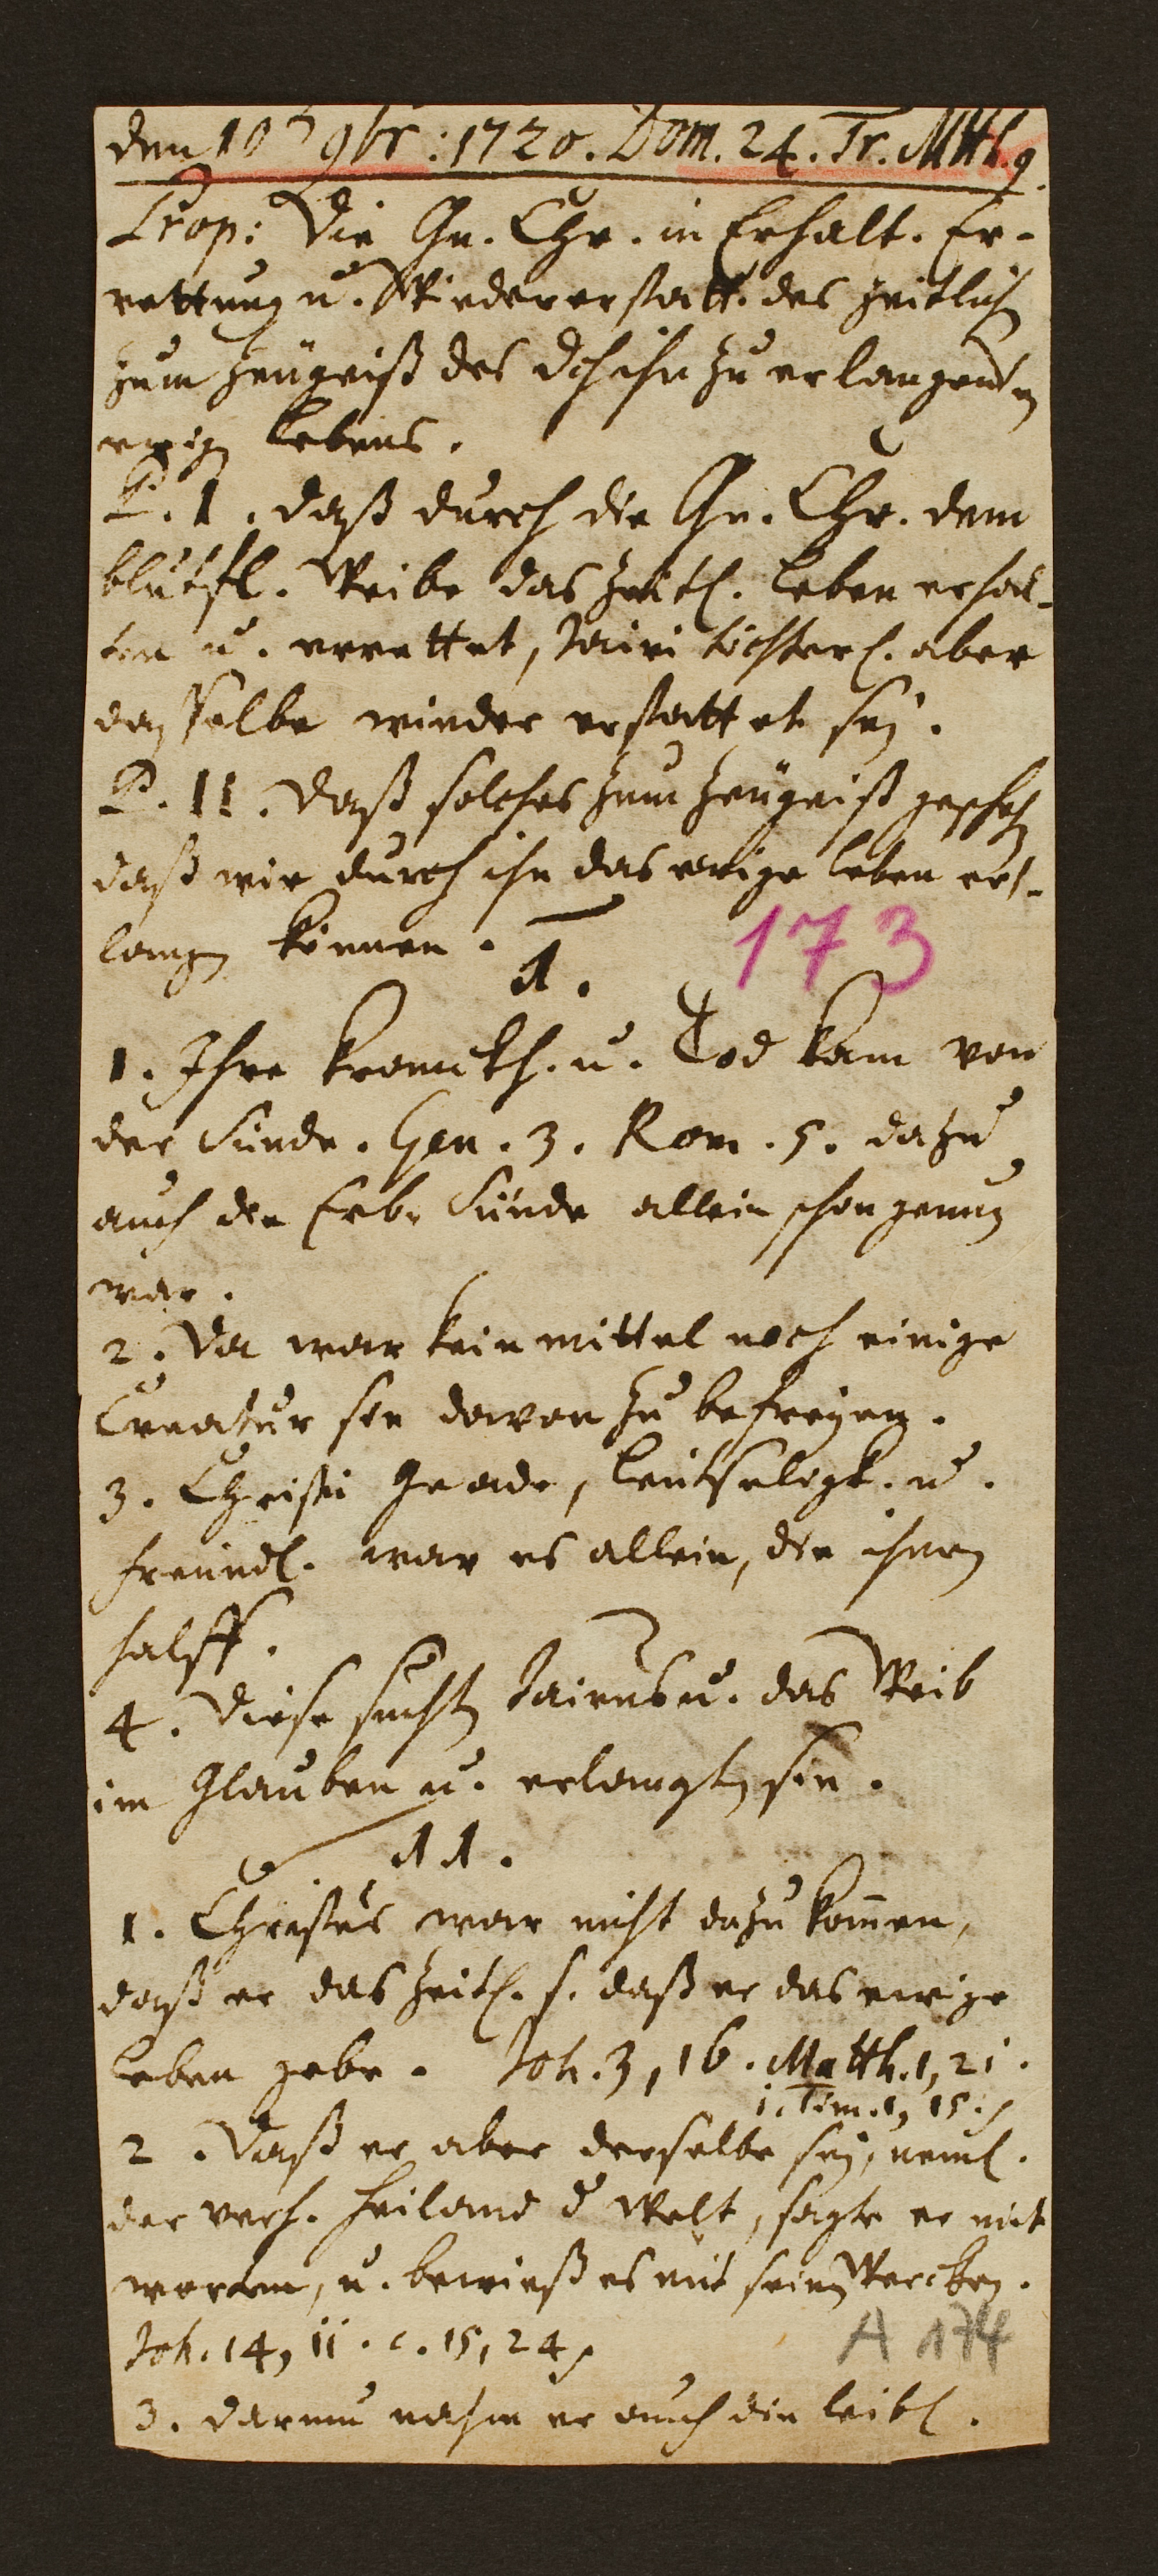 den 10 9br: 1720. Dom. 24. Tr. Mtth. 9.
Prop: Die Gn. Chr. in Erhalt. Er-
rettung u. Wiedererstatt. des zeitlich
zum Zeugniß des dch ihn zu erlangenden
ewigen Lebens.
P. I. daß durch die Gn. Chr. dem
blutfl. Weibe das zeitl. Leben erhal-
ten u. errettet, Jairi töchterl. aber
dasselbe wieder erstattet sey.
P. II. Daß solches zum Zeugniß geschehen
daß wir durch ihn das ewige leben er-
langen können.
173
I.
1. Ihre Kranckh. u. Tod kam von
der Sünde. Gen. 3. Rom. 5. dazu
auch die Erb. Sünde allein schon genug
war.
2. Da war kein mittel noch einige
Creatur sie davon zu befreyen.
3. Christi Gnade, leutseligk. u.
freundl. war es allein, die ihnen
halff.
4. Diese suchten Jairus u. das Weib
im Glauben u. erlangten sie.
II.
1. Christus war nicht dazu kommen,
daß er das zeitl. s. daß er das ewige
leben gebe. Joh. 3, 16. Matth. 1, 21.
1. Tim. 1, 15.
2. Daß er aber derselbe sey, neml.
der verh. Heiland d Welt, sagte er mit
worten, u. bewieß es mit seinen Wercken.
Joh. 14, 11. c. 15, 24.
A 174
3. darum nahm er auch die leibl.